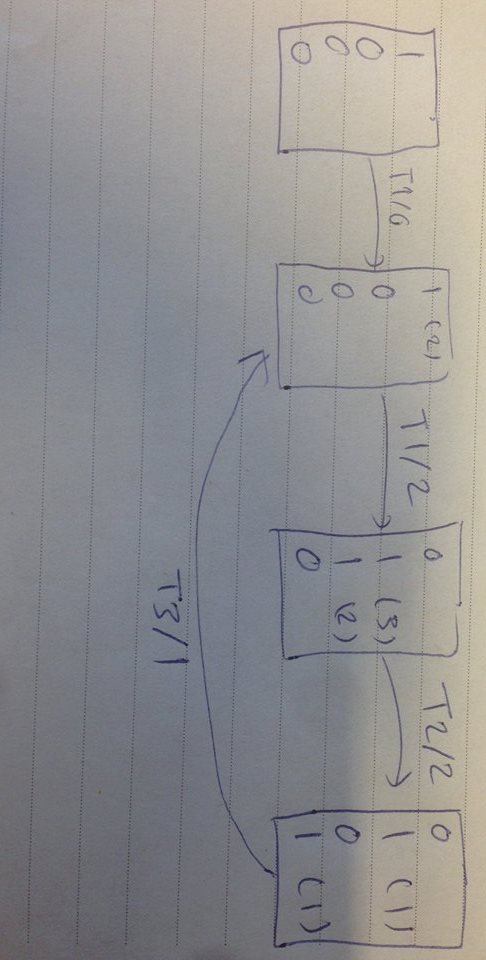 1
0
0
0
T1/0
1 (2)
0
0
0
T1/2
0
1 (3)
1 (2)
0
T2/2
0
1 (1)
0
1 (1)
T3/1